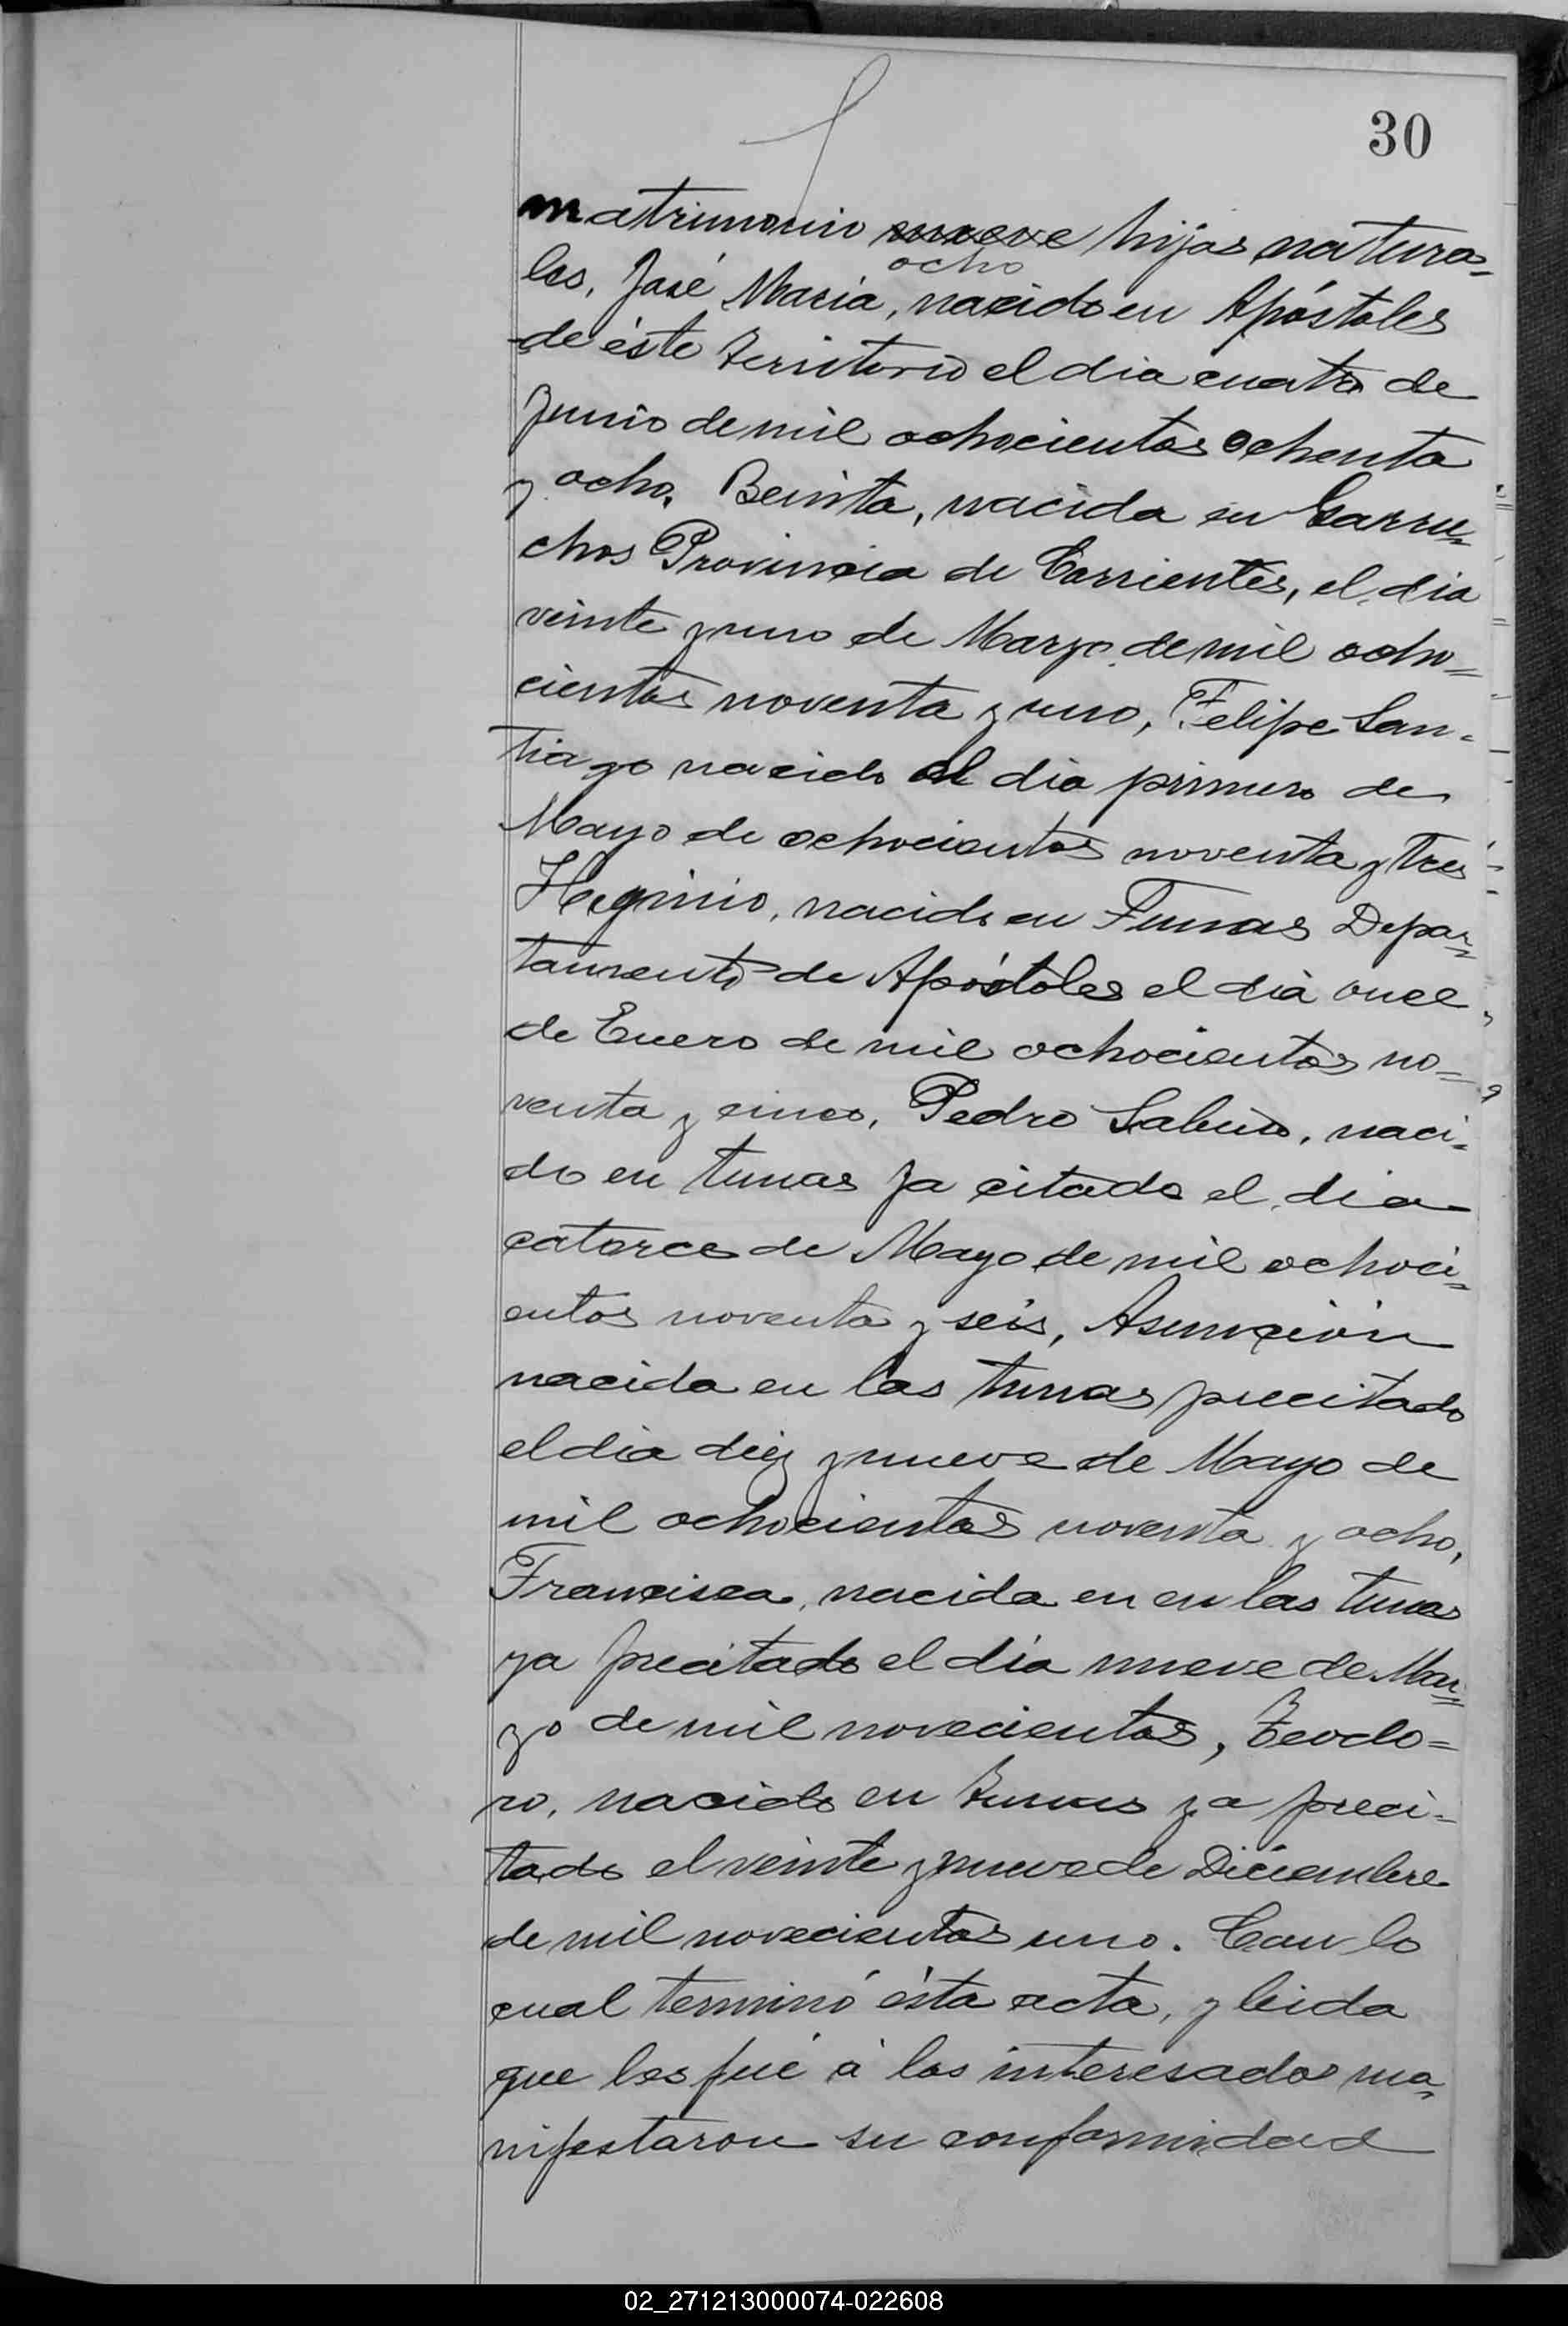 30
matrimonio nueve hijos natura-
ocho
les, José Maria, nacido en Apóstoles
de éste territorio el dia cuatro de
Junio de mil ochocientos ochenta
y ocho, Benita, nacida en Garru-
chos Provincia de Corrientes, el dia
veinte y uno de Marzo de mil ocho-
cientos noventa y uno, Felipe San-
tiago nacido el dia primero de
Mayo de ochocientos noventa y tres
Heginio, nacido en Tunas Depar-
tamento de Apóstoles el dia once
de Enero de mil ochocientos no-
venta y cinco, Pedro Sabino, naci-
do en tunas ya citado el dia
catorce de Mayo de mil ochoci-
entos noventa y seis, Asunción
nacida en las tunas precitado
el dia diez y nueve de Mayo de
mil ochocientos noventa y ocho,
Francisca, nacida en en las tunas
ya precitado el día nueve de Mar-
zo de mil novecientos, Teodo=
ro, nacido en tunas ya preci-
tado el veinte y nueve de Diciembre
de mil novecientos uno. Con lo
cual terminó ésta acta, y leida
que les fué á los interesados ma-
nifestaron su conformidad
02_271213000074-022608